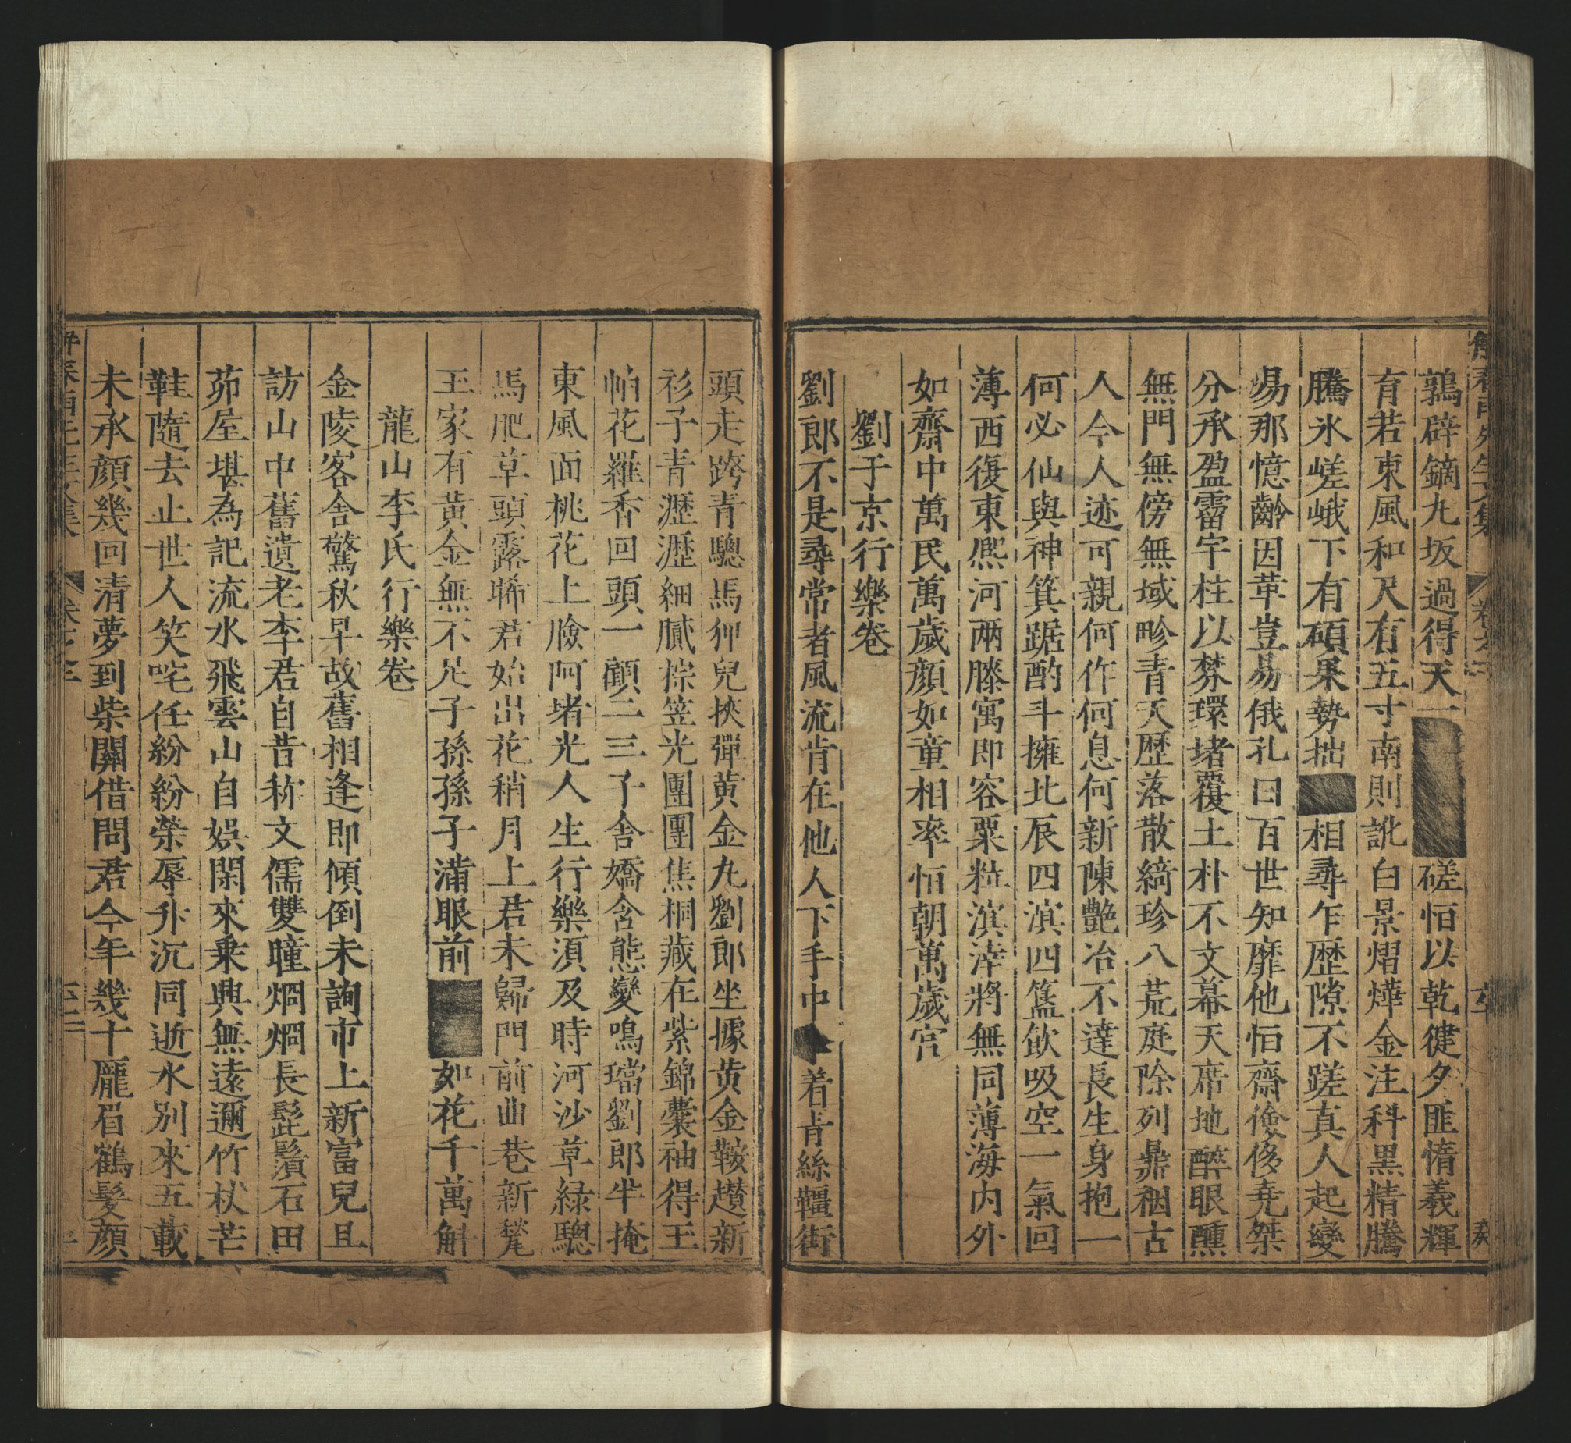 鶉辟鏑九坂過得天一 磋怕以乾健夕匪惰羲輝
育若東風和尺有五寸南則訛白景熠燁金注科黑精騰
騰氷嵯峨下有碩果勢拙 相尋乍歷隙不蹉真人起變
易那憶齡因革豈易俄孔曰百世知靡他怕齋儉侈堯桀
分承盈霤宇柱以棼環堵覆土朴不文幕天席地醉眼醺
無門無傍無域畛青天歷落散綺珍八荒庭除列鼎裀古
人今人迹可親何作何息何新陳艷冶不達長生身抱一
何必仙與神箕踞酌斗擁北辰四溟四簋飲吸空一氣回
薄西復東熈河兩滕寓即容粟粒溟涬將無同薄海内外
如齋中萬民萬歲顔如童相率怕朝萬歲宮
劉于京行樂卷
劉郎不是尋常者風流肯在他人下手中 着青絲韁街
頭走跨青驄馬狎兒挾彈黄金九劉郎坐據黄金鞍趲新
衫子青瀝瀝細膩棕笠光團團焦桐藏在紫錦囊袖得王
帕花羅香回頭一顧二三子含嬌含態變鳴璫劉郎半掩
東風面桃花上臉阿堵光人生行樂須及時河沙草緑驄
馬肥草頭露晞君始出花稍月上君未歸門前曲巷新鼕
王家有黄金無不足子孫孫子滿眼前 如花千萬斛
龍山李氏行樂卷
金陵客舍驚秋早故舊相逢即傾倒未詢市上新富兒且
訪山中舊遺老李君自昔称文儒雙瞳烱烱長髭鬚石田
茆屋堪為記流水飛雲山自娯閑來乘興無遠邇竹杖芒
鞋隨去止世人笑咤任紛紛榮辱升沉同逝水别來五載
未承顔幾回清夢到柴關借問君今年幾十龐眉鶴髮顔